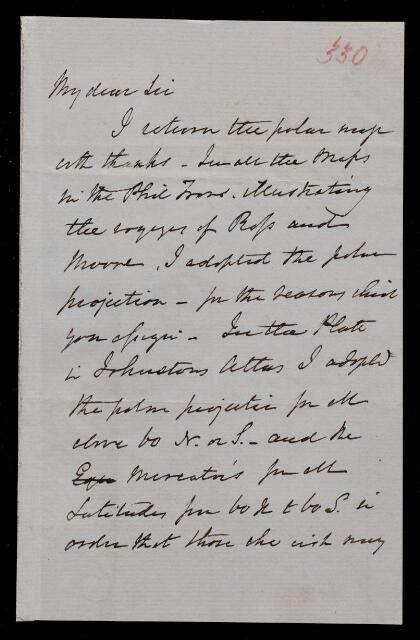 330
My dear Sir
I return the polar map
with thanks - In all the Maps
in the Phil Trans. illustrating
the voyages of Ross and
Moore, I adopted the polar
projection - for the reasons which
you assign - In the Plate
in Johnstons Atlas I adopted
the polar projection for all
above 60 N. or S. - and the
Equ Mercator's for all
Latitudes from 60 N & 60 S. in
order that those who wish may